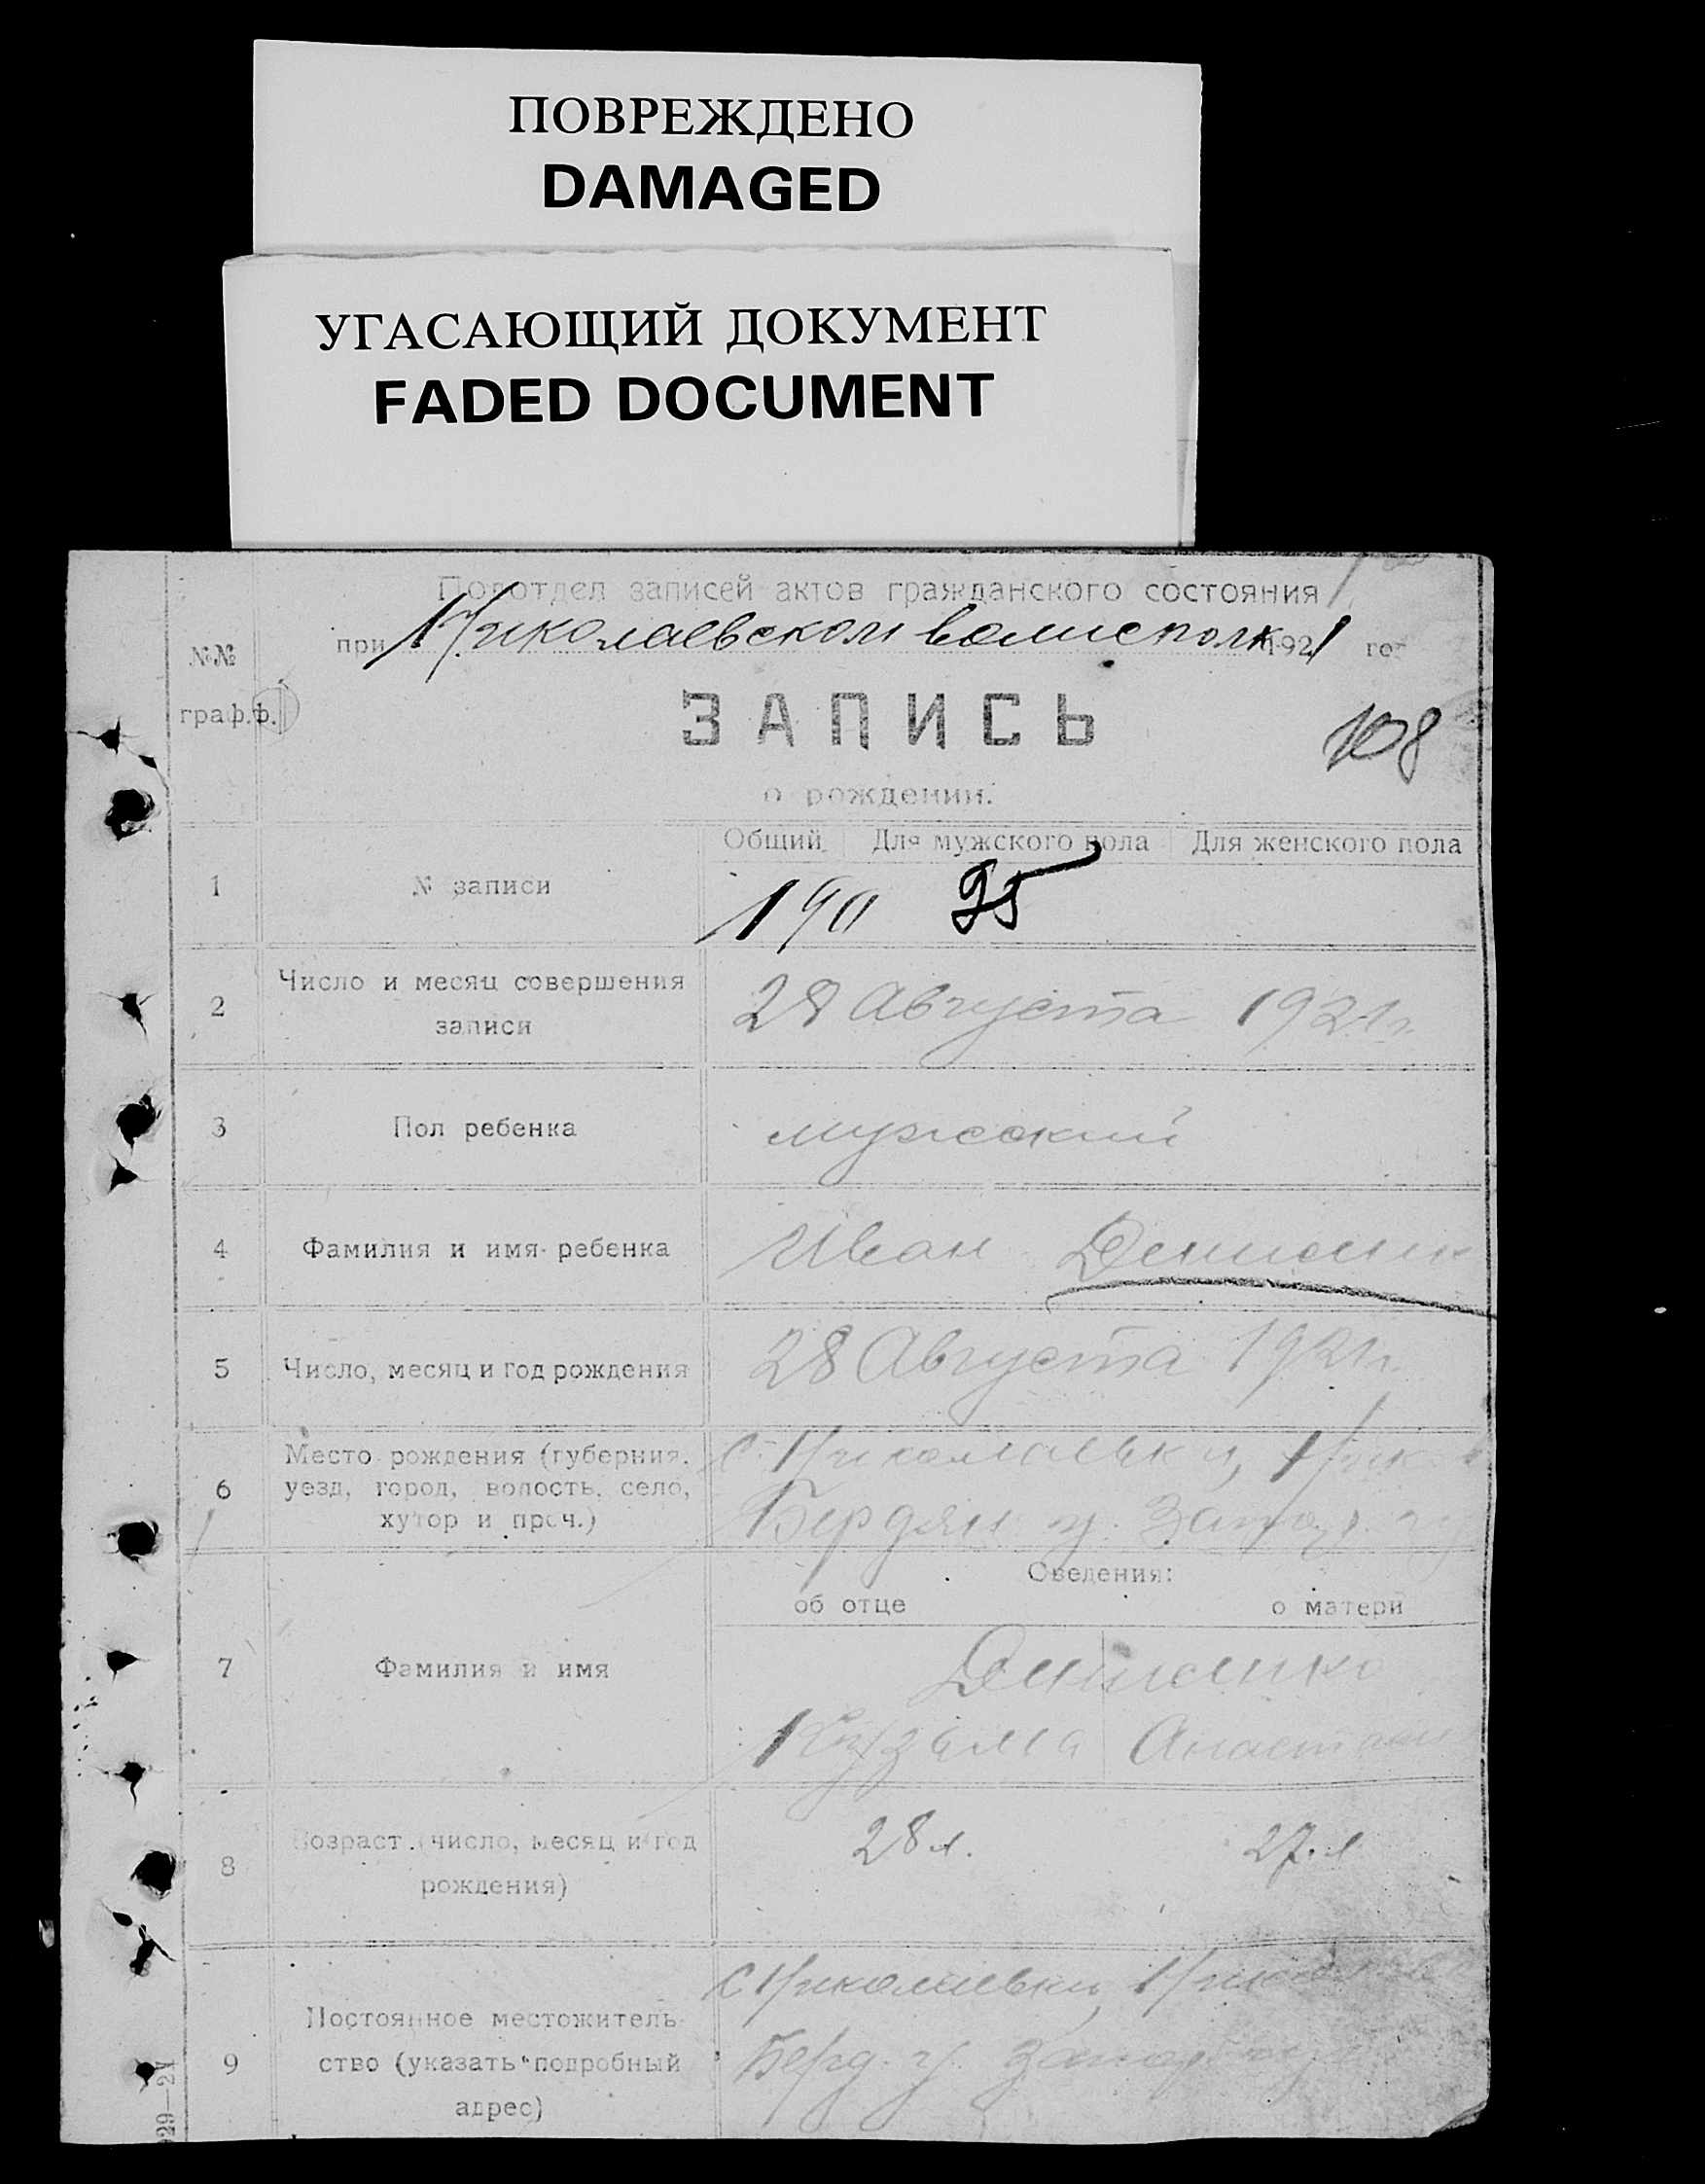 ПОВРЕЖДЕНО
DAMAGED
УГАСАЮЩИЙ ДОКУМЕНТ
FADED DOCUMENT
Подотдел записей актов гражданского состояния
при Николаевском волисполк 1921 го
№№
граф.ф.
ЗАПИСЬ
108
о рождении.
Общий Для мужского пола Для женского пола
1 № записи 190 95
2 Число и месяц совершения записи 28 Августа 1921 г.
3 Пол ребенка мужеский
4 Фамилия и имя ребенка Иван
5 Число, месяц и год рождения 28 Августа 1921 г.
6 Место рождения (губерния, уезд, город, волость, село, хутор и проч.) с. Николаевка, Ник.
Бердян у. Запор. г
Сведения:
об отце о матери
7 Фамилия и имя
Кузьма
8 Возраст (число, месяц и год рождения) 28 л. 27 л
9 Постоянное местожительство (указать подробный адрес) с Николаевка,
Берд. у. Запор